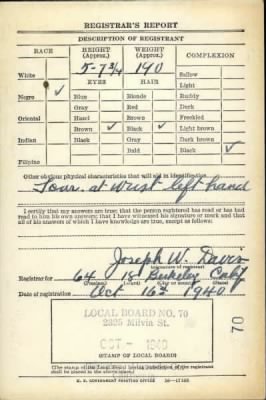 REGISTRAR'S REPORT
DESCRIPTION OF REGISTRANT
RACE HEIGHT (Approx.) WEIGHT (Approx.) COMPLEXION
White 5-7 3/4 190 Sallow
EYES HAIR Light
Negro ✓ Blue Blonde Ruddy
Gray Red Dark
Oriental Hazel Brown Freckled
Brown ✓ Black ✓ Light brown
Indian Black Gray Dark brown
Bald Black ✓
Filipino
Other obvious physical characteristics that will aid in identification
Scar, at wrist left hand
I certify that my answers are true; that the person registered has read or has had
read to him his own answers; that I have witnessed his signature or mark and that
all of his answers of which I have knowledge are true, except as follows:
Joseph W. Davis
(Signature of registrar)
Registrar for 64 18 Berkeley Calif
(Precinct) (Ward) (City or county) (State)
Date of registration Oct 16 1940
LOCAL BOARD NO. 70
2325 Milvia St.
OCT - 1940
(STAMP OF LOCAL BOARD)
70
(The stamp of the Local Board having jurisdiction of the registrant
shall be placed in the above space.)
U. S. GOVERNMENT PRINTING OFFICE